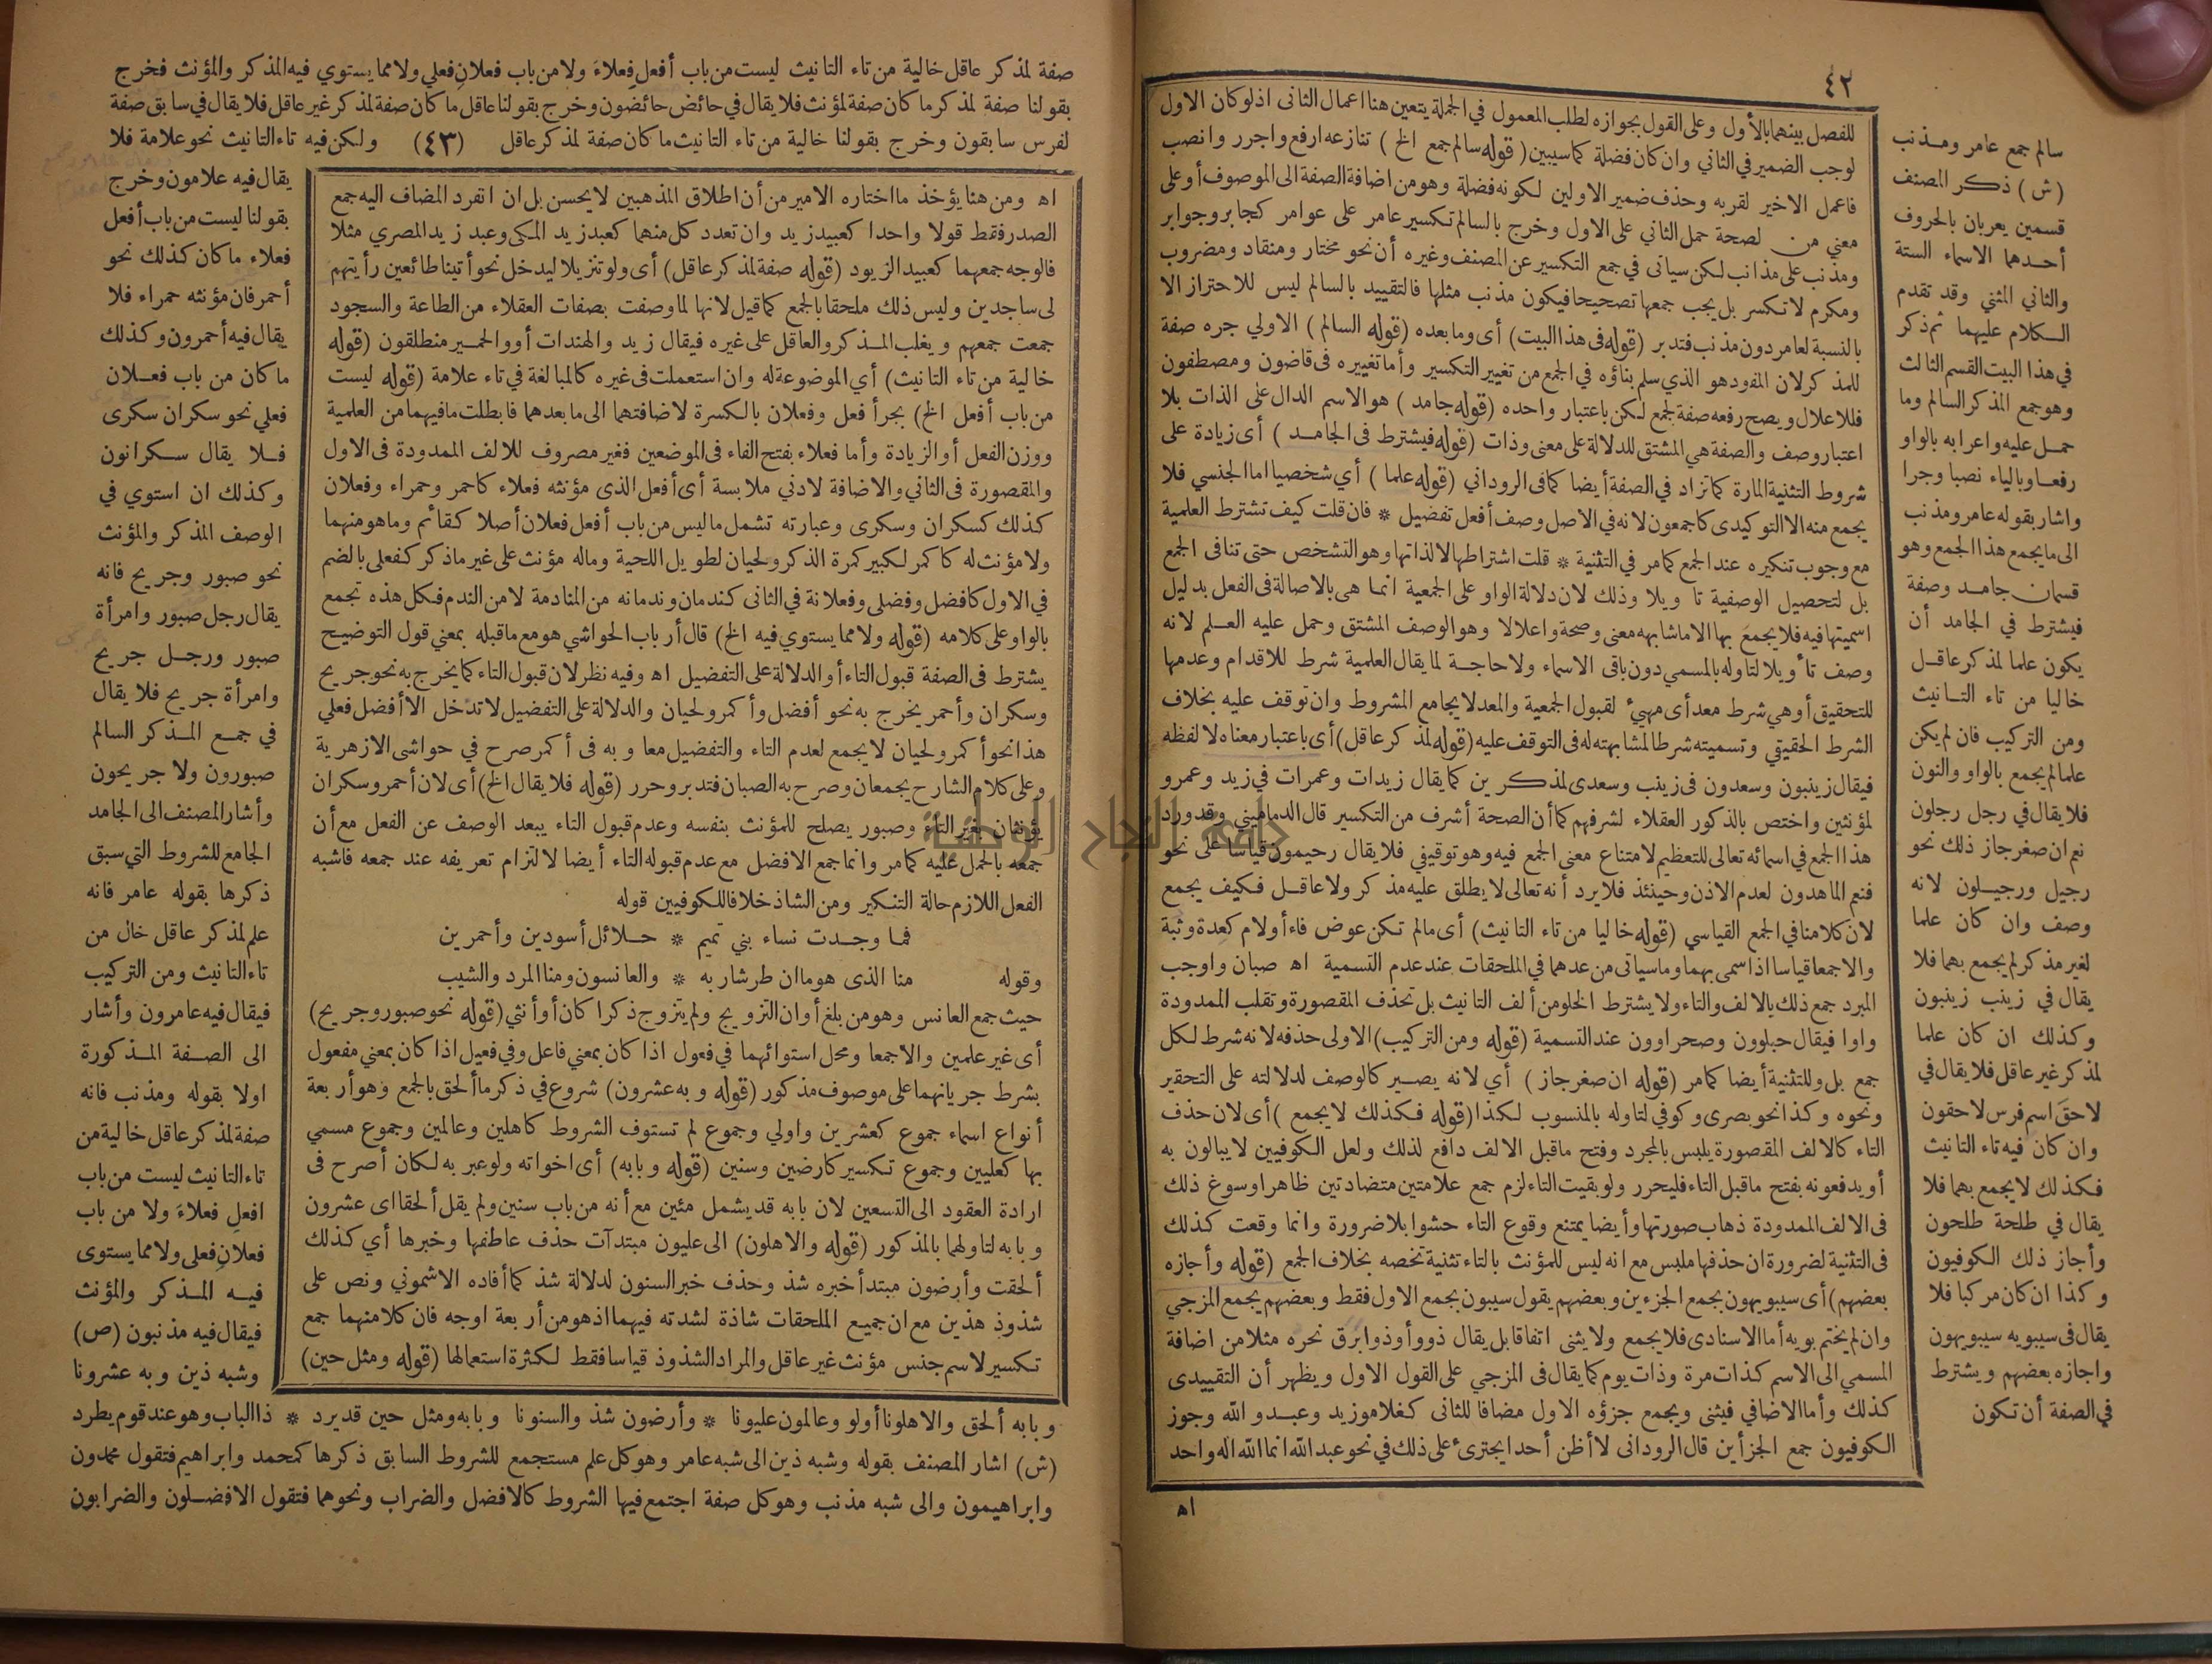 ٤٢
سالم جمع عامر ومذنب
(ش) ذكر المصنف
قسمين يعربان بالحروف
أحدهما الاسماء الستة
والثاني المثني وقد تقدم
الكلام عليهما ثم ذكر
في هذا البيت القسم الثالث
وهو جمع المذكر السالم وما
حمل عليه واعرابه بالواو
رفعا وبالياء نصبا وجرا
واشار بقوله عامر ومذنب
الى ما يجمع هذا الجمع وهو
قسمان جامد وصفة
فيشترط في الجامد أن
يكون علما لمذكر عاقل
خاليا من تاء التانيث
ومن التركيب فان لم يكن
علما لم يجمع بالواو والنون
فلا يقال في رجل رجلون
نعم ان صغر جاز ذلك نحو
رجيل ورجيلون لانه
وصف وان كان علما
لغير مذكر لم يجمع بهما فلا
يقال في زينب زينبون
وكذلك ان كان علما
لمذكر غير عاقل فلا يقال في
لاحق اسم فرس لاحقون
وان كان فيه تاء التانيث
فكذلك لا يجمع بهما فلا
يقال في طلحة طلحون
وأجاز ذلك الكوفيون
وكذا ان كان مركبا فلا
يقال فى سيبويه سيبويهون
واجازه بعضهم ويشترط
في الصفة أن تكون
للفصل بينهما بالأول وعلى القول بجوازه لطلب المعمول في الجملة يتعين هنا اعمال الثانى اذ لو كان الاول
لوجب الضمير في الثاني وان كان فضلة كما سيبين (قوله سالم جمع الخ) تنازعه ارفع واجرر وانصب
فاعمل الاخير لقربه وحذف ضمير الاولين لكونه فضلة وهو من اضافة الصفة الى الموصوف أو على
معني من لصحة حمل الثاني على الاول وخرج بالسالم تكسير عامر على عوامر كجابر وجوابر
ومذنب على مذانب لكن سياتى في جمع التكسير عن المصنف وغيره أن نحو مختار ومنقاد ومضروب
ومكرم لا تكسر بل يجب جمعها تصحيحا فيكون مذنب مثلها فالتقييد بالسالم ليس للاحتراز الا
بالنسبة لعامر دون مذنب فتدبر (قوله فى هذا البيت) أى وما بعده (قوله السالم) الاولي جره صفة
للمذكر لان المفرد هو الذي سلم بناؤه في الجمع من تغيير التكسير وأما تغييره فى قاضون ومصطفون
فللاعلال ويصح رفعه صفة لجمع لكن باعتبار واحده (قوله جامد) هو الاسم الدال على الذات بلا
اعتبار وصف والصفة هي المشتق للدلالة على معنى وذات (قوله فيشترط فى الجامد) أى زيادة على
شروط التثنية المارة كما تزاد في الصفة أيضا كما فى الروداني (قوله علما) أي شخصيا اما الجنسي فلا
يجمع منه الا التوكيدى كاجمعون لانه في الاصل وصف أفعل تفضيل * فان قلت كيف تشترط العلمية
مع وجوب تنكيره عند الجمع كما مر في التثنية * قلت اشتراطها لا لذاتها وهو التشخص حتى تنافى الجمع
بل لتحصيل الوصفية تاويلا وذلك لان دلالة الواو على الجمعية انما هى بالاصالة فى الفعل بدليل
اسميتها فيه فلا يجمع بها الا ما شابهه معنى وصحة واعلالا وهو الوصف المشتق وحمل عليه العلم لانه
وصف تأويلا لتاوله بالمسمي دون باقى الاسماء ولا حاجة لما يقال العلمية شرط للاقدام وعدمها
للتحقيق أو هي شرط معد أى مهيئ لقبول الجمعية والمعد لا يجامع المشروط وان توقف عليه بخلاف
الشرط الحقيقي وتسميته شرطا لمشابهته له فى التوقف عليه (قوله لمذكر عاقل) أى باعتبار معناه لا لفظه
فيقال زينبون وسعدون فى زينب وسعدى لمذكرين كما يقال زيدات وعمرات في زيد وعمرو
لمؤنثين واختص بالذكور العقلاء لشرفهم كما أن الصحة أشرف من التكسير قال الدماميني وقد ورد
هذا الجمع في اسمائه تعالى للتعظيم لامتناع معنى الجمع فيه وهو توقيفي فلا يقال رحيمون قياسا على نحو
فنعم الماهدون لعدم الاذن وحينئذ فلا يرد أنه تعالى لا يطلق عليه مذكر ولا عاقل فكيف يجمع
لان كلامنا في الجمع القياسي (قوله خاليا من تاء التانيث) أى ما لم تكن عوض فاء أو لام كعدة وثبة
والا جمعا قياسا اذا سمى بهما وما سياتى من عدهما في الملحقات عند عدم التسمية اه صبان واوجب
المبرد جمع ذلك بالالف والتاء ولا يشترط الخلو من ألف التانيث بل تحذف المقصورة وتقلب الممدودة
واوا فيقال حبلوون وصحراوون عند التسمية (قوله ومن التركيب) الاولى حذفه لانه شرط لكل
جمع بل وللتثنية أيضا كما مر (قوله ان صغر جاز) أي لانه يصير كالوصف لدلالته على التحقير
ونحوه وكذا نحو بصرى وكوفي لتاوله بالمنسوب لكذا (قوله فكذلك لا يجمع) أى لان حذف
التاء كالالف المقصورة يلبس بالمجرد وفتح ماقبل الالف دافع لذلك ولعل الكوفيين لا يبالون به
أو يدفعونه بفتح ماقبل التاء فليحرر ولو بقيت التاء لزم جمع علامتين متضادتين ظاهرا وسوغ ذلك
فى الالف الممدودة ذهاب صورتها وأيضا يمتنع وقوع التاء حشوا بلا ضرورة وانما وقعت كذلك
فى التثنية لضرورة ان حذفها ملبس مع انه ليس للمؤنث بالتاء تثنية تخصه بخلاف الجمع (قوله وأجازه
بعضهم) أى سيبويهون بجمع الجزءين وبعضهم يقول سيبون بجمع الاول فقط وبعضهم يجمع المزجي
وان لم يختم بويه أما الاسنادى فلا يجمع ولا يثنى اتفاقا بل يقال ذوو أو ذوا برق نحره مثلا من اضافة
المسمي الى الاسم كذات مرة وذات يوم كما يقال فى المزجي على القول الاول ويظهر أن التقييدى
كذلك وأما الاضافي فيثنى ويجمع جزؤه الاول مضافا للثانى كغلامو زيد وعبدو الله وجوز
الكوفيون جمع الجزأين قال الرودانى لا أظن أحدا يجترئ على ذلك في نحو عبد الله انما الله اله واحد
اه
صفة لمذكر عاقل خالية من تاء التانيث ليست من باب أفعل فعلاء ولا من باب فعلان فعلي ولا مما يستوي فيه المذكر والمؤنث فخرج
بقولنا صفة لمذكر ما كان صفة لمؤنث فلا يقال في حائض حائضون وخرج بقولنا عاقل ما كان صفة لمذكر غير عاقل فلا يقال في سابق صفة
لفرس سابقون وخرج بقولنا خالية من تاء التانيث ما كان صفة لمذكر عاقل (٤٣) ولكن فيه تاء التانيث نحو علامة فلا
يقال فيه علامون وخرج
بقولنا ليست من باب أفعل
فعلاء ما كان كذلك نحو
أحمر فان مؤنثه حمراء فلا
يقال فيه أحمرون وكذلك
ما كان من باب فعلان
فعلي نحو سكران سكرى
فلا يقال سكرانون
وكذلك ان استوي في
الوصف المذكر والمؤنث
نحو صبور وجريح فانه
يقال رجل صبور وامرأة
صبور ورجل جريح
وامرأة جريح فلا يقال
في جمع المذكر السالم
صبورون ولا جريحون
وأشار المصنف الى الجامد
الجامع للشروط التي سبق
ذكرها بقوله عامر فانه
علم لمذكر عاقل خال من
تاء التانيث ومن التركيب
فيقال فيه عامرون وأشار
الى الصفة المذكورة
اولا بقوله ومذنب فانه
صفة لمذكر عاقل خالية من
تاء التانيث ليست من باب
افعل فعلاء ولا من باب
فعلان فعلى ولا مما يستوى
فيه المذكر والمؤنث
فيقال فيه مذنبون (ص)
وشبه ذين وبه عشرونا
اه ومن هنا يؤخذ ما اختاره الامير من أن اطلاق المذهبين لا يحسن بل ان اتفرد المضاف اليه جمع
الصدر فقط قولا واحدا كعبيد زيد وان تعدد كل منهما كعبد زيد المكى وعبد زيد المصري مثلا
فالوجه جمعهما كعبيد الزيود (قوله صفة لمذكر عاقل) أى ولو تنزيلا ليدخل نحو أتينا طائعين رأيتهم
لى ساجدين وليس ذلك ملحقا بالجمع كما قيل لانها لما وصفت بصفات العقلاء من الطاعة والسجود
جمعت جمعهم ويغلب المذكر والعاقل على غيره فيقال زيد والهندات أو والحمير منطلقون (قوله
خالية من تاء التانيث) أي الموضوعة له وان استعملت فى غيره كالمبالغة في تاء علامة (قوله ليست
من باب أفعل الخ) بجر أفعل وفعلان بالكسرة لاضافتهما الى ما بعدهما فابطلت ما فيهما من العلمية
ووزن الفعل أو الزيادة وأما فعلاء بفتح الفاء فى الموضعين فغير مصروف للالف الممدودة فى الاول
والمقصورة فى الثاني والاضافة لادني ملابسة أى أفعل الذى مؤنثه فعلاء كاحمر وحمراء وفعلان
كذلك كسكران وسكرى وعبارته تشمل ما ليس من باب أفعل فعلان أصلا كقائم وما هو منهما
ولا مؤنث له كاكمر لكبير كمرة الذكر ولحيان لطويل اللحية وماله مؤنث على غير ماذكر كفعلى بالضم
في الاول كافضل وفضلى وفعلانة في الثانى كندمان وندمانه من المنادمة لا من الندم فكل هذه تجمع
بالواو على كلامه (قوله ولا مما يستوي فيه الخ) قال أرباب الحواشي هو مع ماقبله بمعني قول التوضيح
يشترط فى الصفة قبول التاء أو الدلالة على التفضيل اه وفيه نظر لان قبول التاء كما يخرج به نحو جريح
وسكران وأحمر يخرج به نحو أفضل وأكمر ولحيان والدلالة على التفضيل لا تدخل الا أفضل فعلي
هذا نحو أكمر ولحيان لا يجمع لعدم التاء والتفضيل معا وبه فى أكمر صرح في حواشى الازهرية
وعلى كلام الشارح يجمعان وصرح به الصبان فتدبر وحرر (قوله فلا يقال الخ) أى لان أحمر وسكران
يؤنثان بغير التاء وصبور يصلح للمؤنث بنفسه وعدم قبول التاء يبعد الوصف عن الفعل مع أن
جمعه بالحمل عليه كما مر وانما جمع الافضل مع عدم قبوله التاء أيضا لالتزام تعريفه عند جمعه فاشبه
الفعل اللازم حالة التنكير ومن الشاذ خلافا للكوفيين قوله
فما وجدت نساء بني تميم * حلائل أسودين وأحمرين
وقوله منا الذى هو ما ان طر شاربه * والعانسون ومنا المرد والشيب
حيث جمع العانس وهو من بلغ أوان التزويج ولم يتزوج ذكرا كان أو أنثي (قوله نحو صبور وجريح)
أى غير علمين والا جمعا ومحل استوائهما في فعول اذا كان بمعني فاعل وفي فعيل اذا كان بمعني مفعول
بشرط جريانهما على موصوف مذكور (قوله وبه عشرون) شروع في ذكر ما ألحق بالجمع وهو أربعة
أنواع اسماء جموع كعشرين واولي وجموع لم تستوف الشروط كاهلين وعالمين وجموع مسمي
بها كعليين وجموع تكسير كارضين وسنين (قوله وبابه) أى اخواته ولو عبر به لكان أصرح فى
ارادة العقود الى التسعين لان بابه قد يشمل مئين مع أنه من باب سنين ولم يقل ألحقا اى عشرون
وبابه لتاولهما بالمذكور (قوله والاهلون) الى عليون مبتدآت حذف عاطفها وخبرها أي كذلك
ألحقت وأرضون مبتدأ خبره شذ وحذف خبر السنون لدلالة شذ كما أفاده الاشموني ونص على
شذوذ هذين مع ان جميع الملحقات شاذة لشدته فيهما اذ هو من أربعة اوجه فان كلا منهما جمع
تكسير لاسم جنس مؤنث غير عاقل والمراد الشذوذ قياسا فقط لكثرة استعمالها (قوله ومثل حين)
وبابه ألحق والاهلونا أولو وعالمون عليونا * وأرضون شذ والسنونا وبابه ومثل حين قد يرد * ذا الباب وهو عند قوم يطرد
(ش) اشار المصنف بقوله وشبه ذين الى شبه عامر وهو كل علم مستجمع للشروط السابق ذكرها كمحمد وابراهيم فتقول محمدون
وابراهيمون والى شبه مذنب وهو كل صفة اجتمع فيها الشروط كالافضل والضراب ونحوهما فتقول الافضلون والضرابون
جامعة النجاح الوطنية